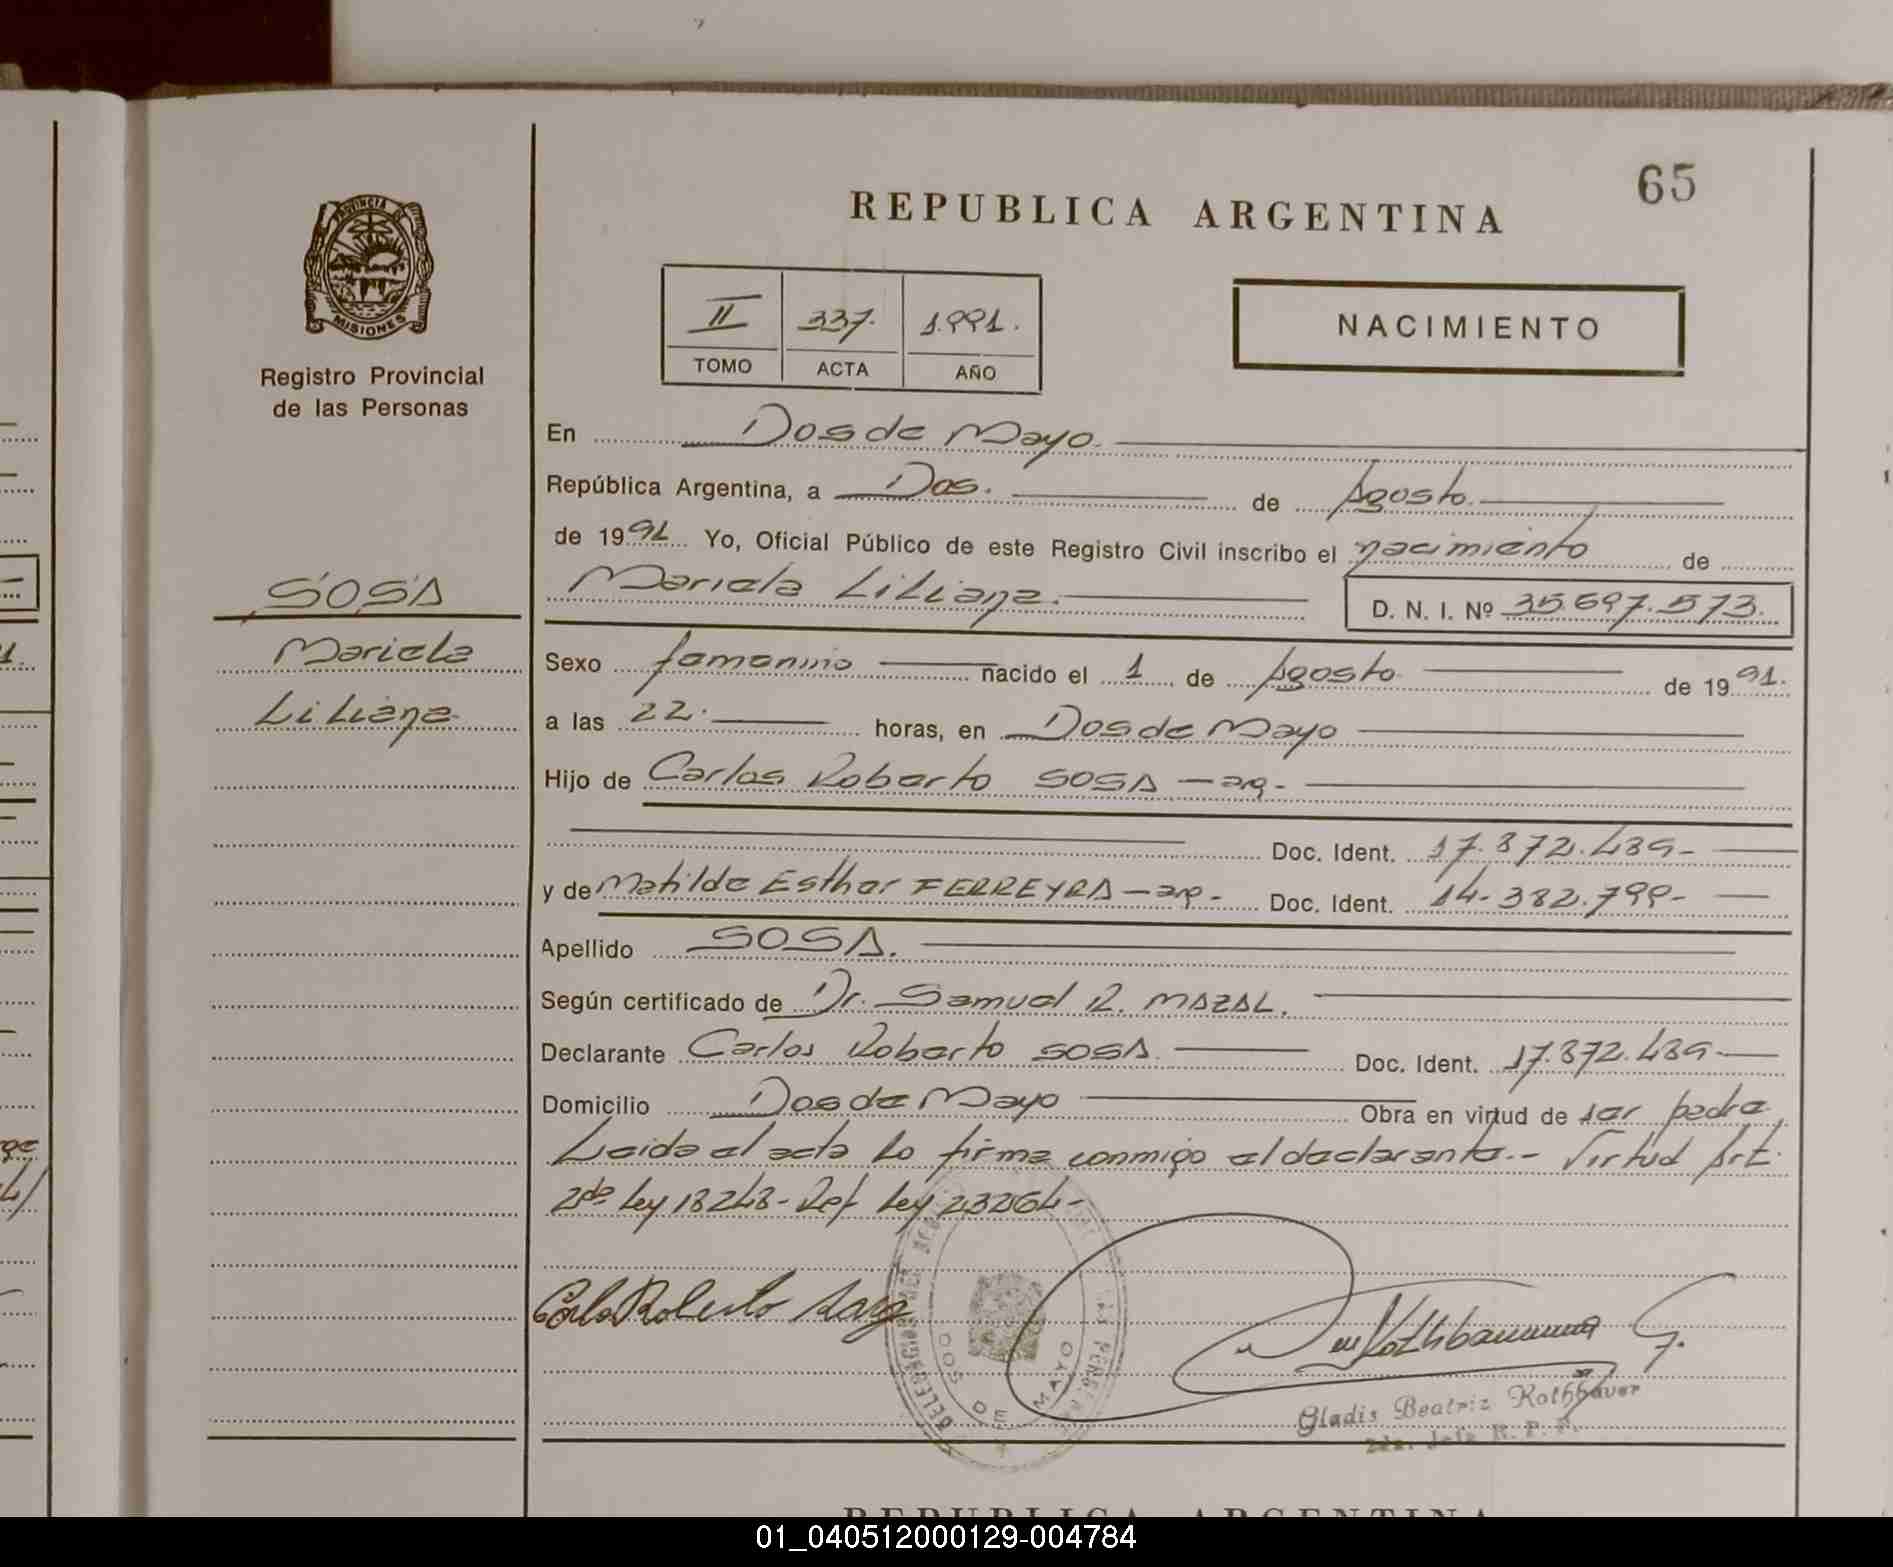 65
REPUBLICA ARGENTINA
PROVINCIA DE
MISIONES
Registro Provincial
de las Personas
II 337. 1.991.
TOMO ACTA AÑO
NACIMIENTO
SOSA
Mariela
Liliana
En Dos de Mayo.
República Argentina, a Dos. de Agosto.
de 1991 Yo, Oficial Público de este Registro Civil inscribo el nacimiento de
Mariela Liliana. D. N. I. Nº 35.697.573.
Sexo femenino nacido el 1 de Agosto de 1991.
a las 22. horas, en Dos de Mayo
Hijo de Carlos Roberto SOSA - arg-
Doc. Ident. 17.872.489-
y de Matilde Esther FERREYRA - arg- Doc. Ident. 14.382.799-
Apellido SOSA.
Según certificado de Dr. Samuel R. MAZAL.
Declarante Carlos Roberto SOSA Doc. Ident. 17.872.489-
Domicilio Dos de Mayo Obra en virtud de ser padre
Leida el acta la firma conmigo el declarante.- Virtud Art.
2do Ley 18248- Ref Ley 23264-
Carlos Roberto Sosa
DOS DE MAYO
Gladis Beatriz Rothbauer
2da. Jefa R. P. P.
REPUBLICA ARGENTINA
01_040512000129-004784